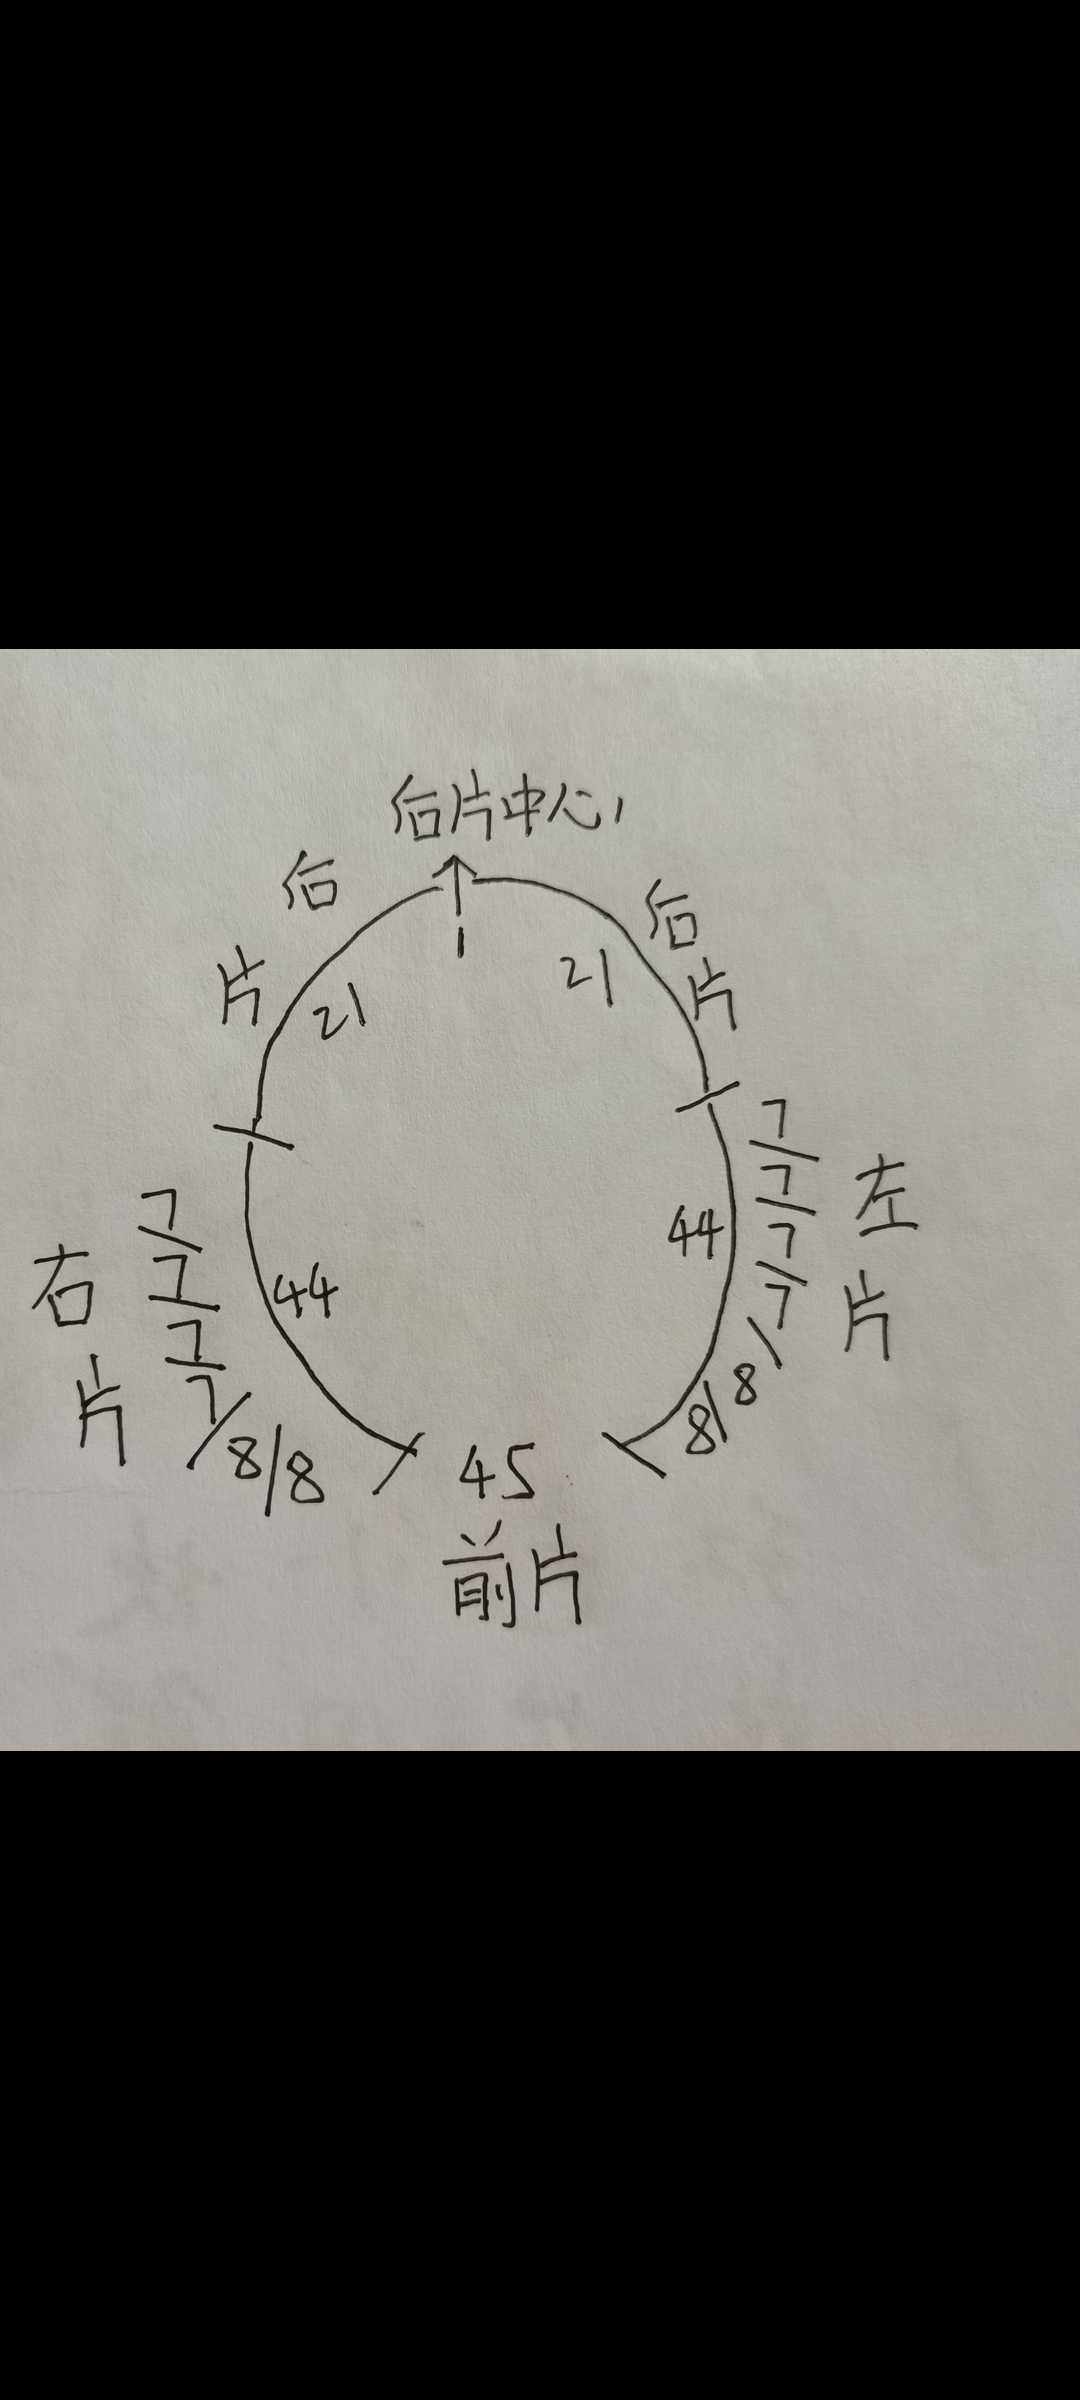 后片中心1
后片
后片
1
21
21
7/7/7/7/8/8
44
右片
44
7/7/7/7/8/8
左片
45
前片